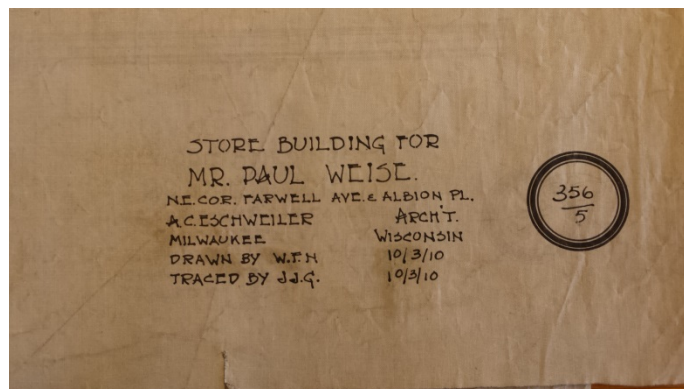 STORE BUILDING FOR
MR. PAUL WEISE.
N.E. COR. FARWELL AVE. & ALBION PL.
A.C. ESCHWEILER ARCH'T.
MILWAUKEE WISCONSIN
DRAWN BY W.F.H 10/3/10
TRACED BY J.J.G. 10/3/10
356
5